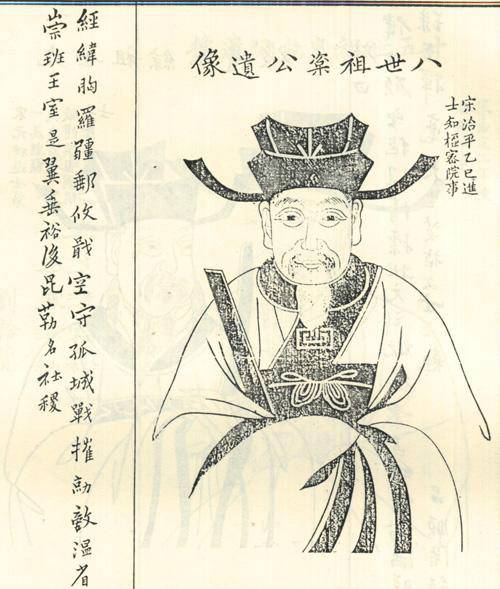 八世祖粢公遺像
宋治平乙巳進
士知樞密院事
經緯胸羅疆郵攸戢空守孤城戰摧勍敵溫省
崇班王室是翼垂裕後昆勒名社稷